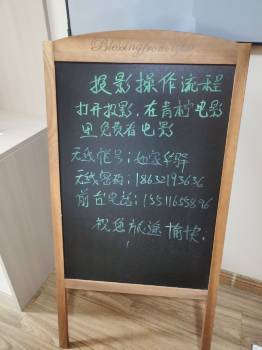 投影操作流程
打开投影，在青柠电影
里免费看电影
无线帐号：如家驿
无线密码：18632193636
前台电话：15511655896
祝您旅途愉快，